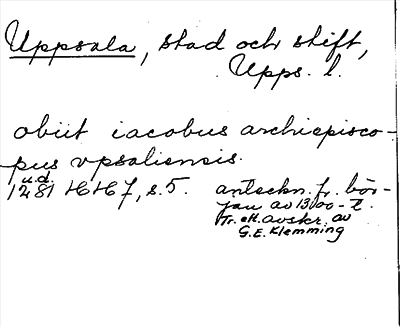 Uppsala, stad och stift,
Upps. l.
obiit iacobus archiepisco-
pus vpsaliensis.
u.d.
1281 HH 7, s. 5. anteckn. fr. bör-
jan av 1300-t.
Tr. eft. avskr. av
G.E. Klemming